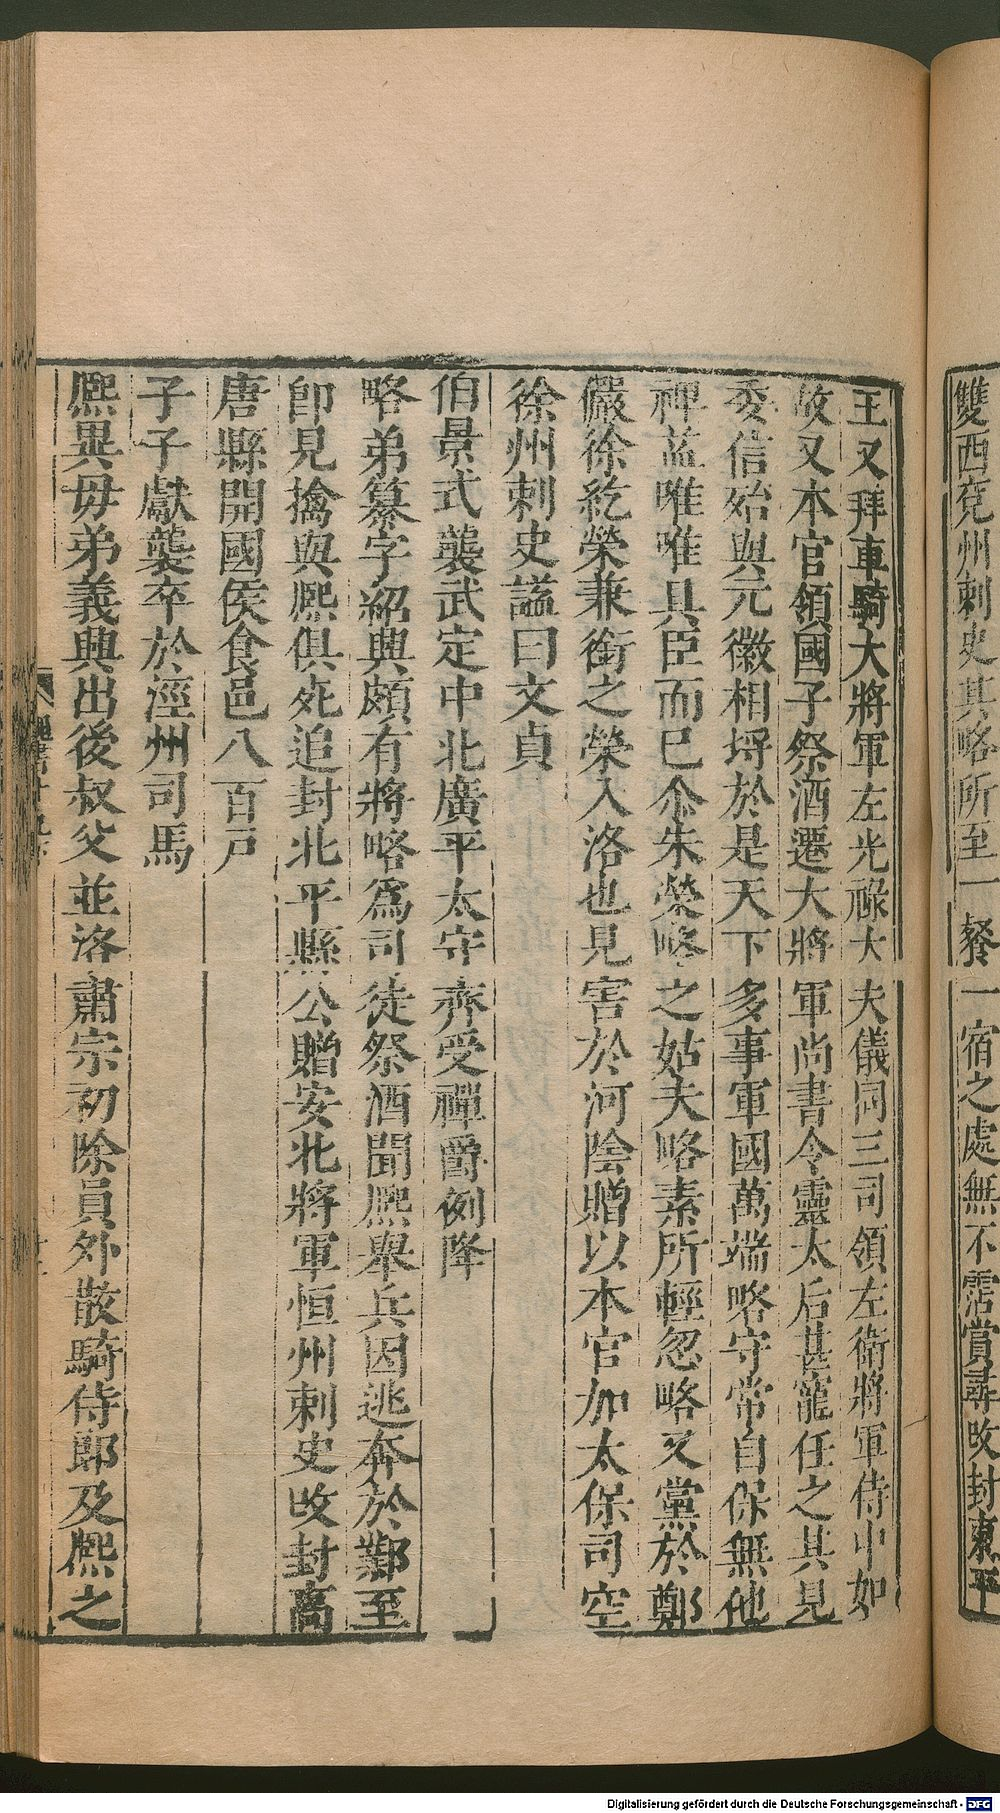 雙西兗州刺史其略所至一餐一宿之處無不霑賞尋攺封東平
王又拜車騎大將軍左光祿大夫儀同三司領左衞將軍侍中如
故又本官領國子祭酒遷大將軍尚書令靈太后甚寵任之其見
委信殆與元徽相埒於是天下多事軍國萬端略守常自保無他
裨益唯唯具臣而已尒朱榮略之姑夫略素所輕忽略又黨於鄭
儼徐紇榮兼銜之榮入洛也見害於河陰贈以本官加太保司空
徐州刺史謚曰文貞
伯景式襲武定中北廣平太守齊受禪爵例降
略弟纂字紹興頗有將略爲司徒祭酒聞熈舉兵因逃奔於鄴至
卽見擒與熈俱死追封北平縣公贈安北將軍恒州刺史攺封高
唐縣開國侯食邑八百戸
子子獻襲卒於涇州司馬
熈異母弟義興出後叔父並洛肅宗初除員外散騎侍郎及熈之
Digitalisierung gefördert durch die Deutsche Forschungsgemeinschaft - DFG